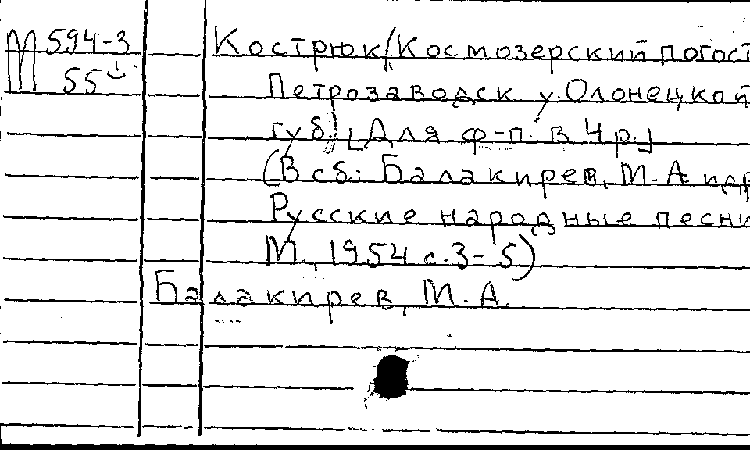 М 594-3
55
Кострюк (Космозерский погост
Петрозаводск. у. Олонецкой
губ.) [Для ф-п. в 4 р.]
(В сб.: Балакирев, М.А и др
Русские народные песни
М., 1954 с. 3-5)
Балакирев, М. А.